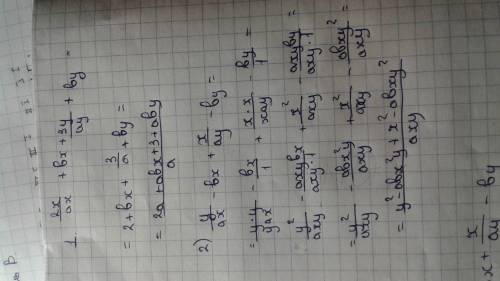 1. 2x/ax + bx + 3y/ay + by =
= 2 + bx + 3/a + by =
= 2a + abx + 3 + aby/a
2) y/ax - bx + x/ay - by =
= y·y/yax - bx/1 + x·x/xay - by/1 =
y²/axy - axybx/axy·1 + x²/axy - axyby/axy·1 =
= y²/axy - abx²y/axy + x²/axy - abxy²/axy =
= y² - abx²y + x² - abxy²/axy
x + x/ay - by